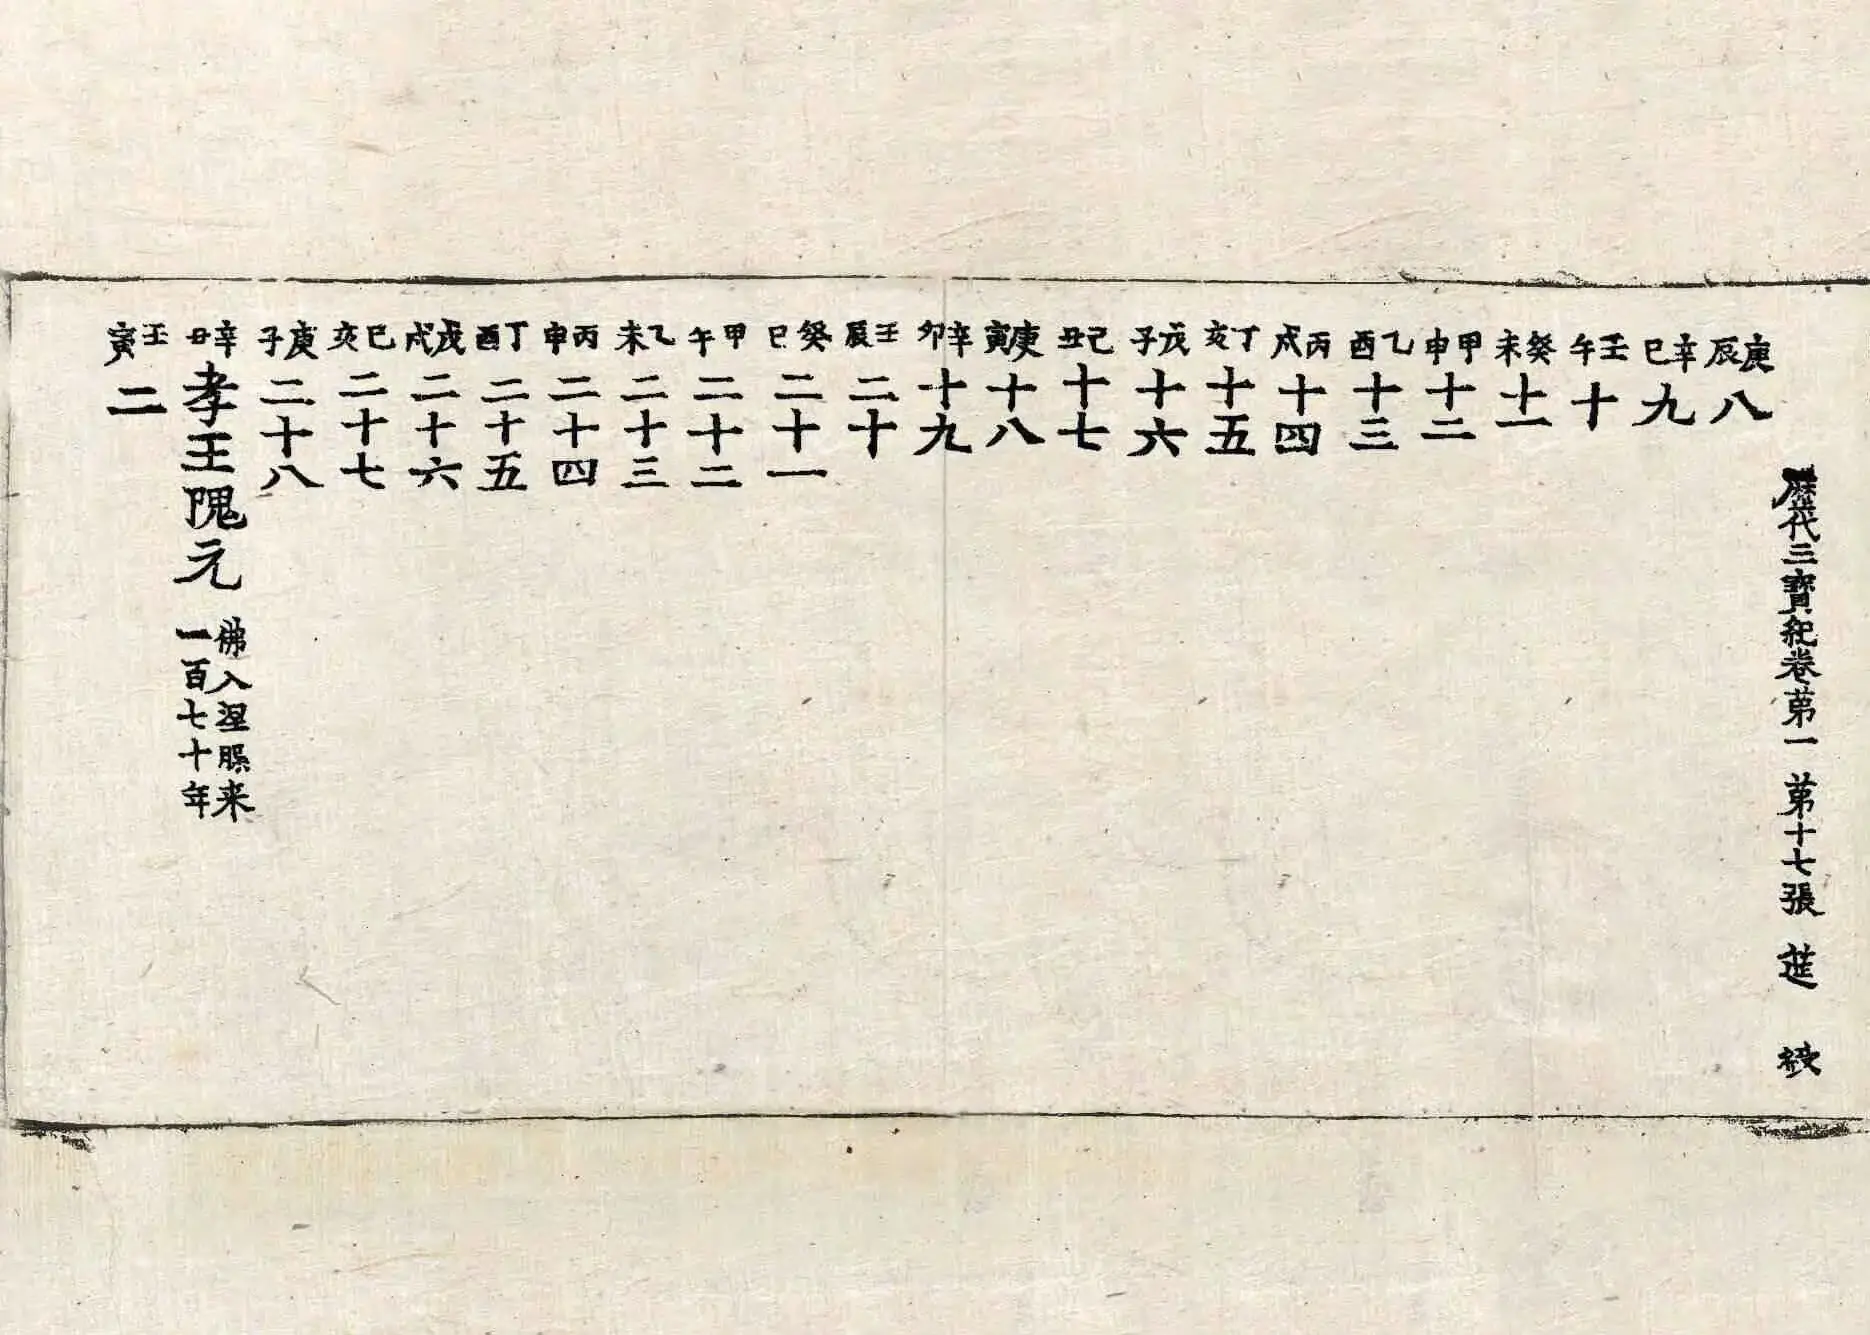 歷代三寶紀卷苐一 苐十七張 𨔛
庚辰 八
辛巳 九
壬午 十
癸未 十一
甲申 十二
乙酉 十三
丙戌 十四
丁亥 十五
戊子 十六
己丑 十七
庚寅 十八
辛卯 十九
壬辰 二十
癸巳 二十一
甲午 二十二
乙未 二十三
丙申 二十四
丁酉 二十五
戊戌 二十六
己亥 二十七
庚子 二十八
辛丑 孝王隗元 佛入涅槃来一百七十年
壬寅 二